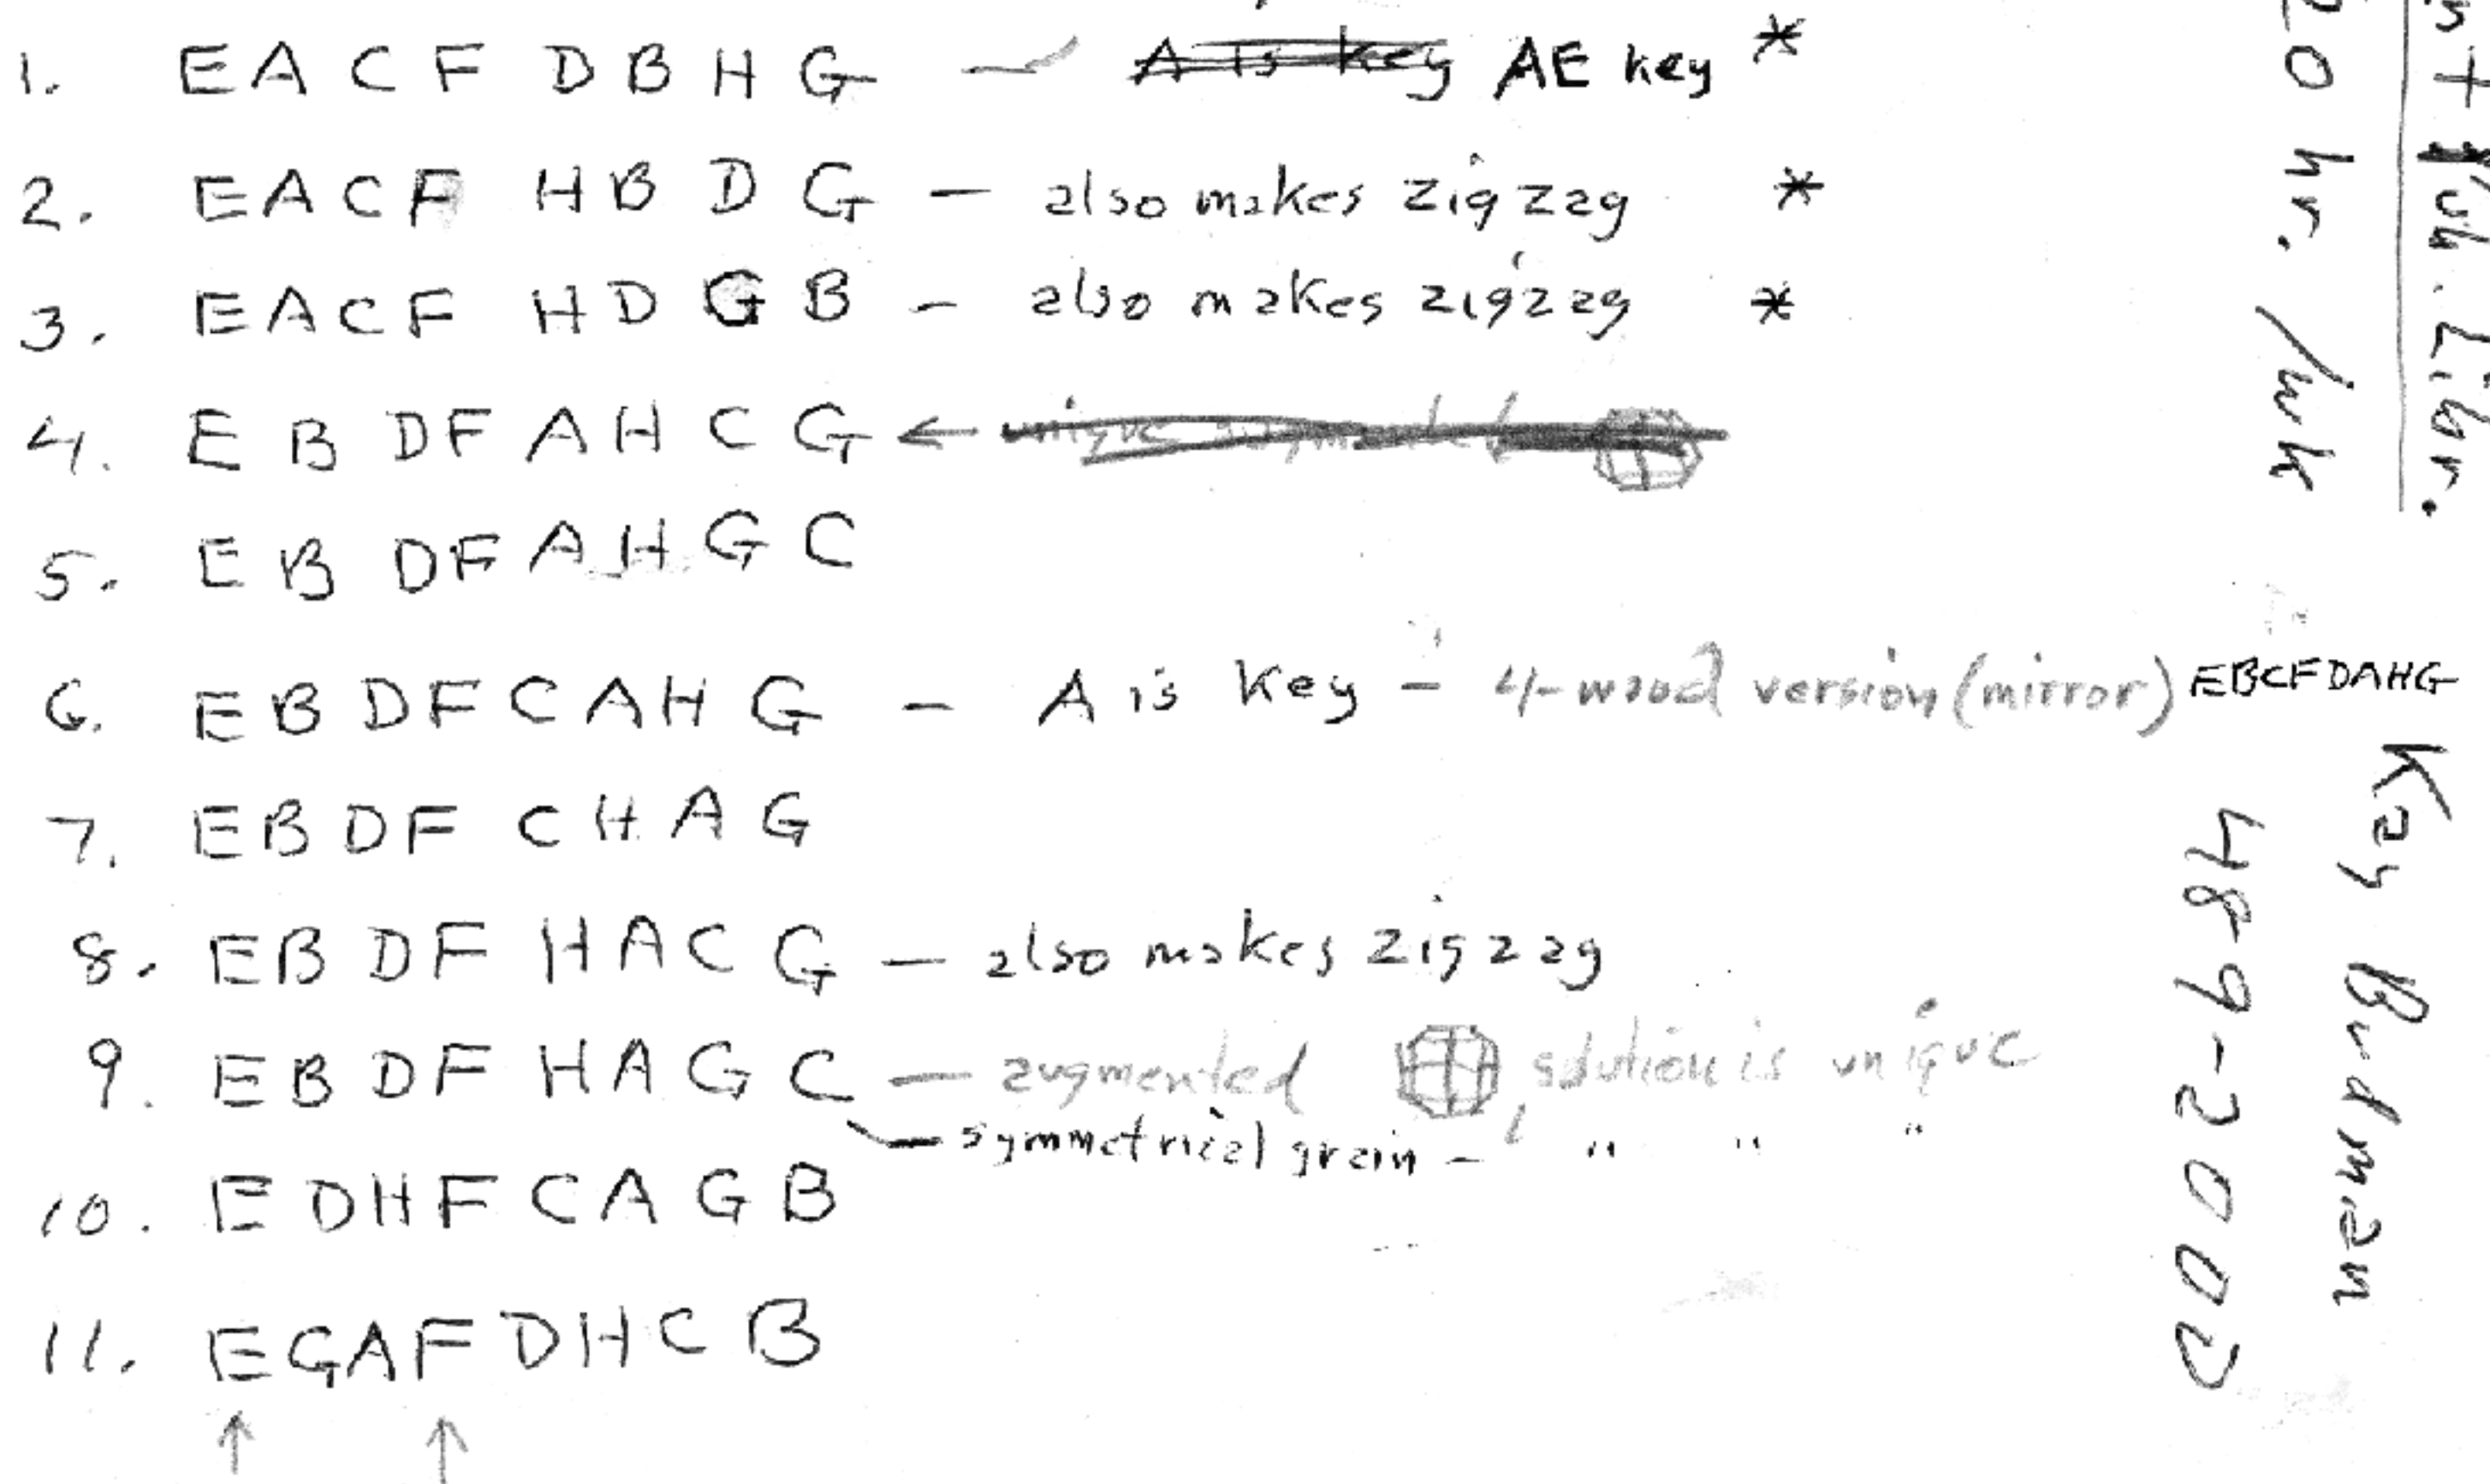 1. EACF DBHG — A is key AE key *
2. EACF HBDG — also makes zigzag *
3. EACF HDGB — also makes zigzag *
4. EBDF AHCG ←
5. EBDF AHGC
6. EBDF CAHG — A is key — 4-wood version (mirror) EBCFDAHG
7. EBDF CHAG
8. EBDF HACG — also makes zigzag
9. EBDF HAGC — augmented solution is unique
— symmetrical grain — " " "
10. EDHF CAGB
11. EGAF DHCB
↑ ↑
20 hr. /wk
Libr.
Kay Budman
489-2000